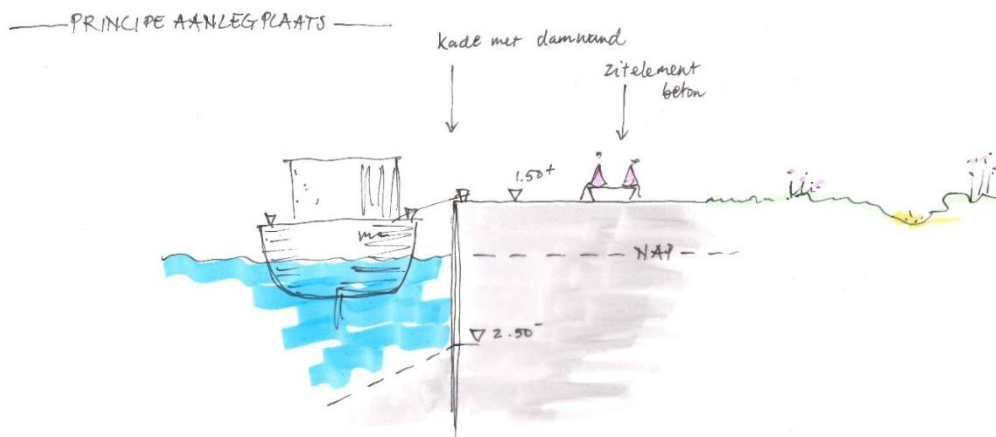 PRINCIPE AANLEGPLAATS
kade met damwand
zitelement
beton
1.50+
NAP
2.50-